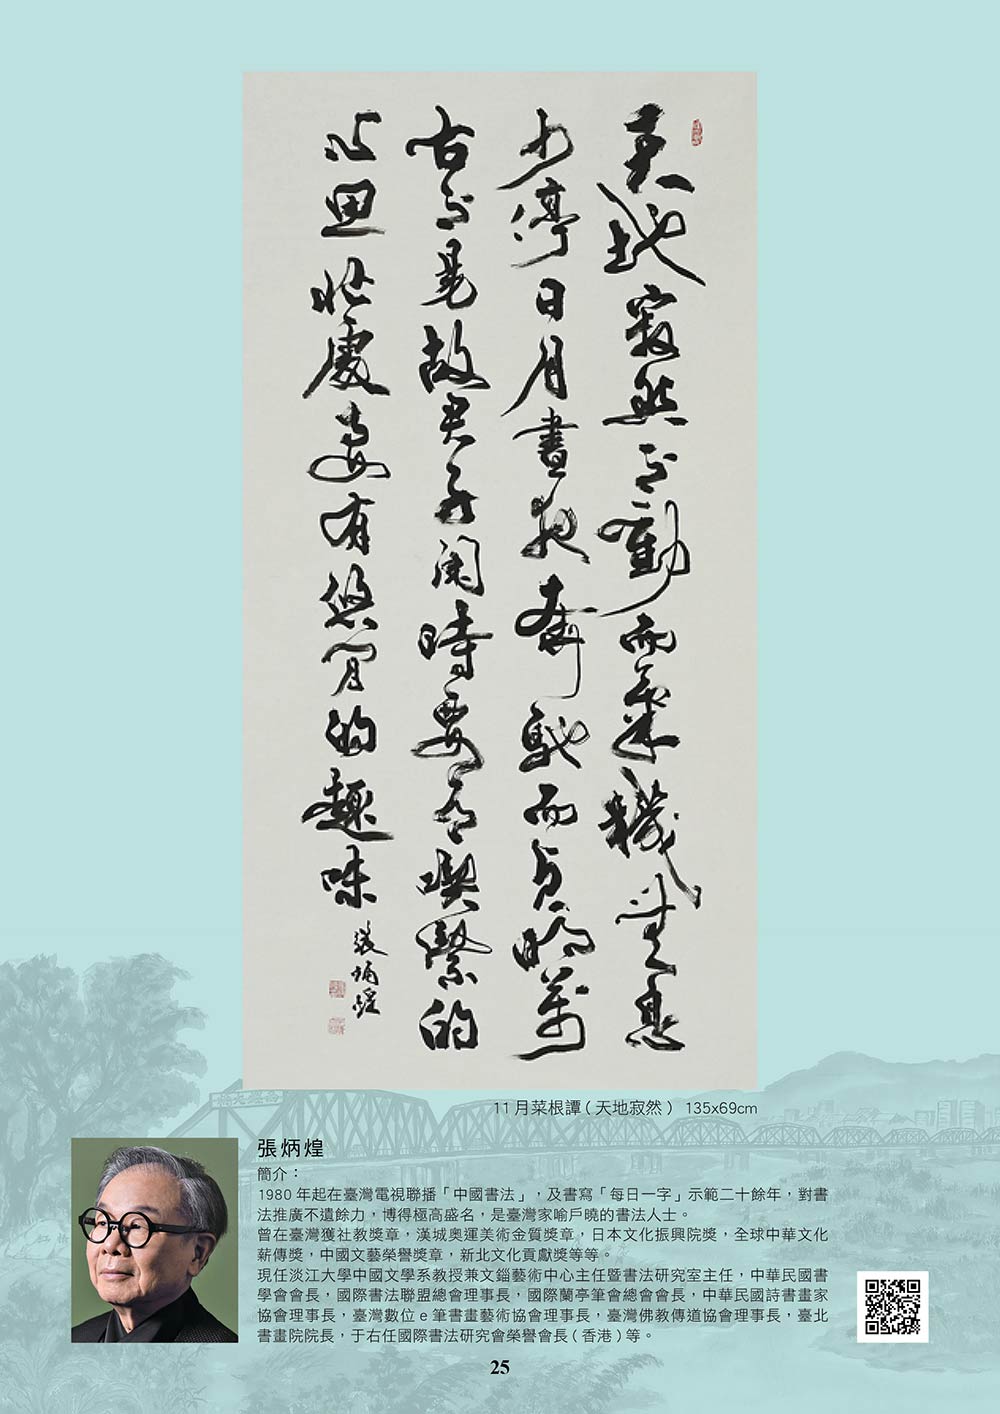 天地寂然不動而氣機無息
少停日月晝夜奔馳而貞明萬
古不易故君子閒時要有喫緊的
心思忙處要有悠閒的趣味
張炳煌
11月菜根譚(天地寂然) 135x69cm
張炳煌
簡介：
1980 年起在臺灣電視聯播「中國書法」，及書寫「每日一字」示範二十餘年，對書
法推廣不遺餘力，博得極高盛名，是臺灣家喻戶曉的書法人士。
曾在臺灣獲社教獎章，漢城奧運美術金質獎章，日本文化振興院獎，全球中華文化
薪傳獎，中國文藝榮譽獎章，新北文化貢獻獎等等。
現任淡江大學中國文學系教授兼文錙藝術中心主任暨書法研究室主任，中華民國書
學會會長，國際書法聯盟總會理事長，國際蘭亭筆會總會會長，中華民國詩書畫家
協會理事長，臺灣數位 e 筆書畫藝術協會理事長，臺灣佛教傳道協會理事長，臺北
書畫院院長，于右任國際書法研究會榮譽會長(香港)等。
25